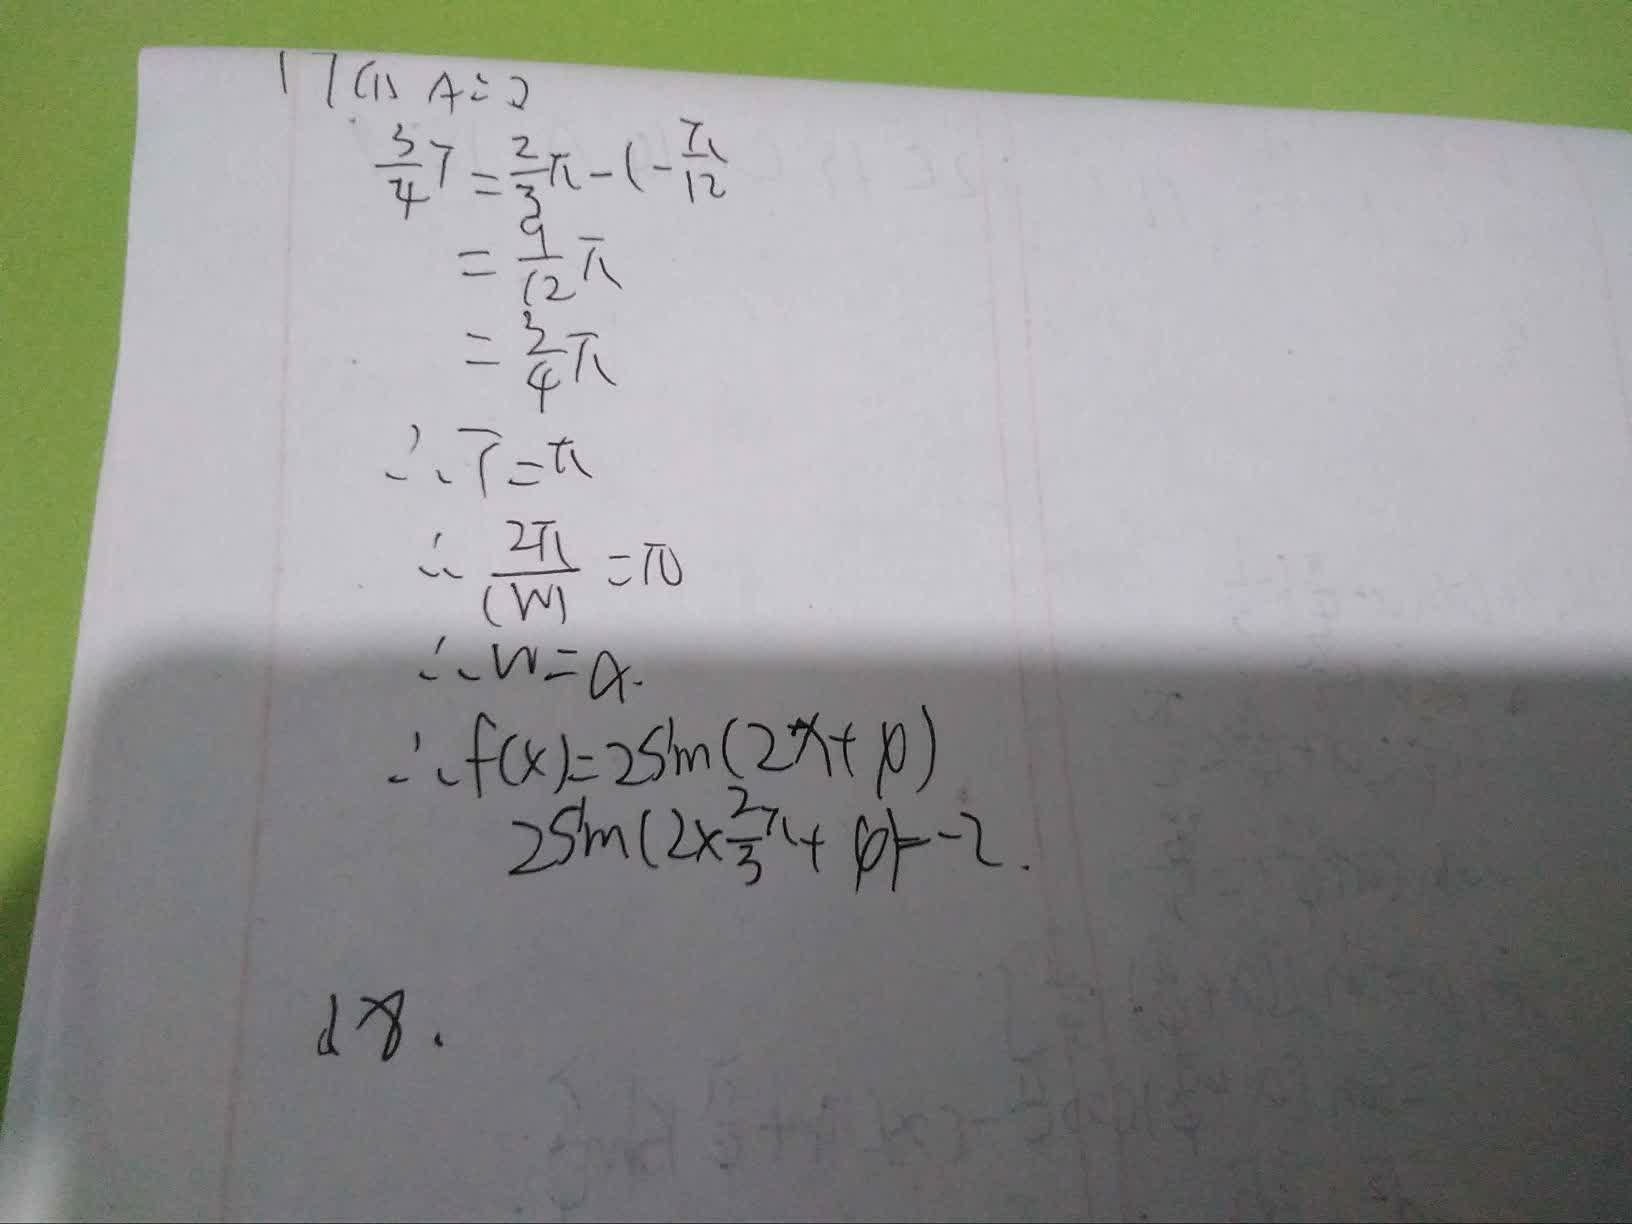 17(1) A=2
3/4 T = 2/3 π - (-π/12
= 9/12 π
= 3/4 π
∴ T = π
∴ 2π/|W| = π
∴ W = 2.
∴ f(x) = 2Sin(2x + φ)
2Sin(2×2/3π + φ) = -2.
18.